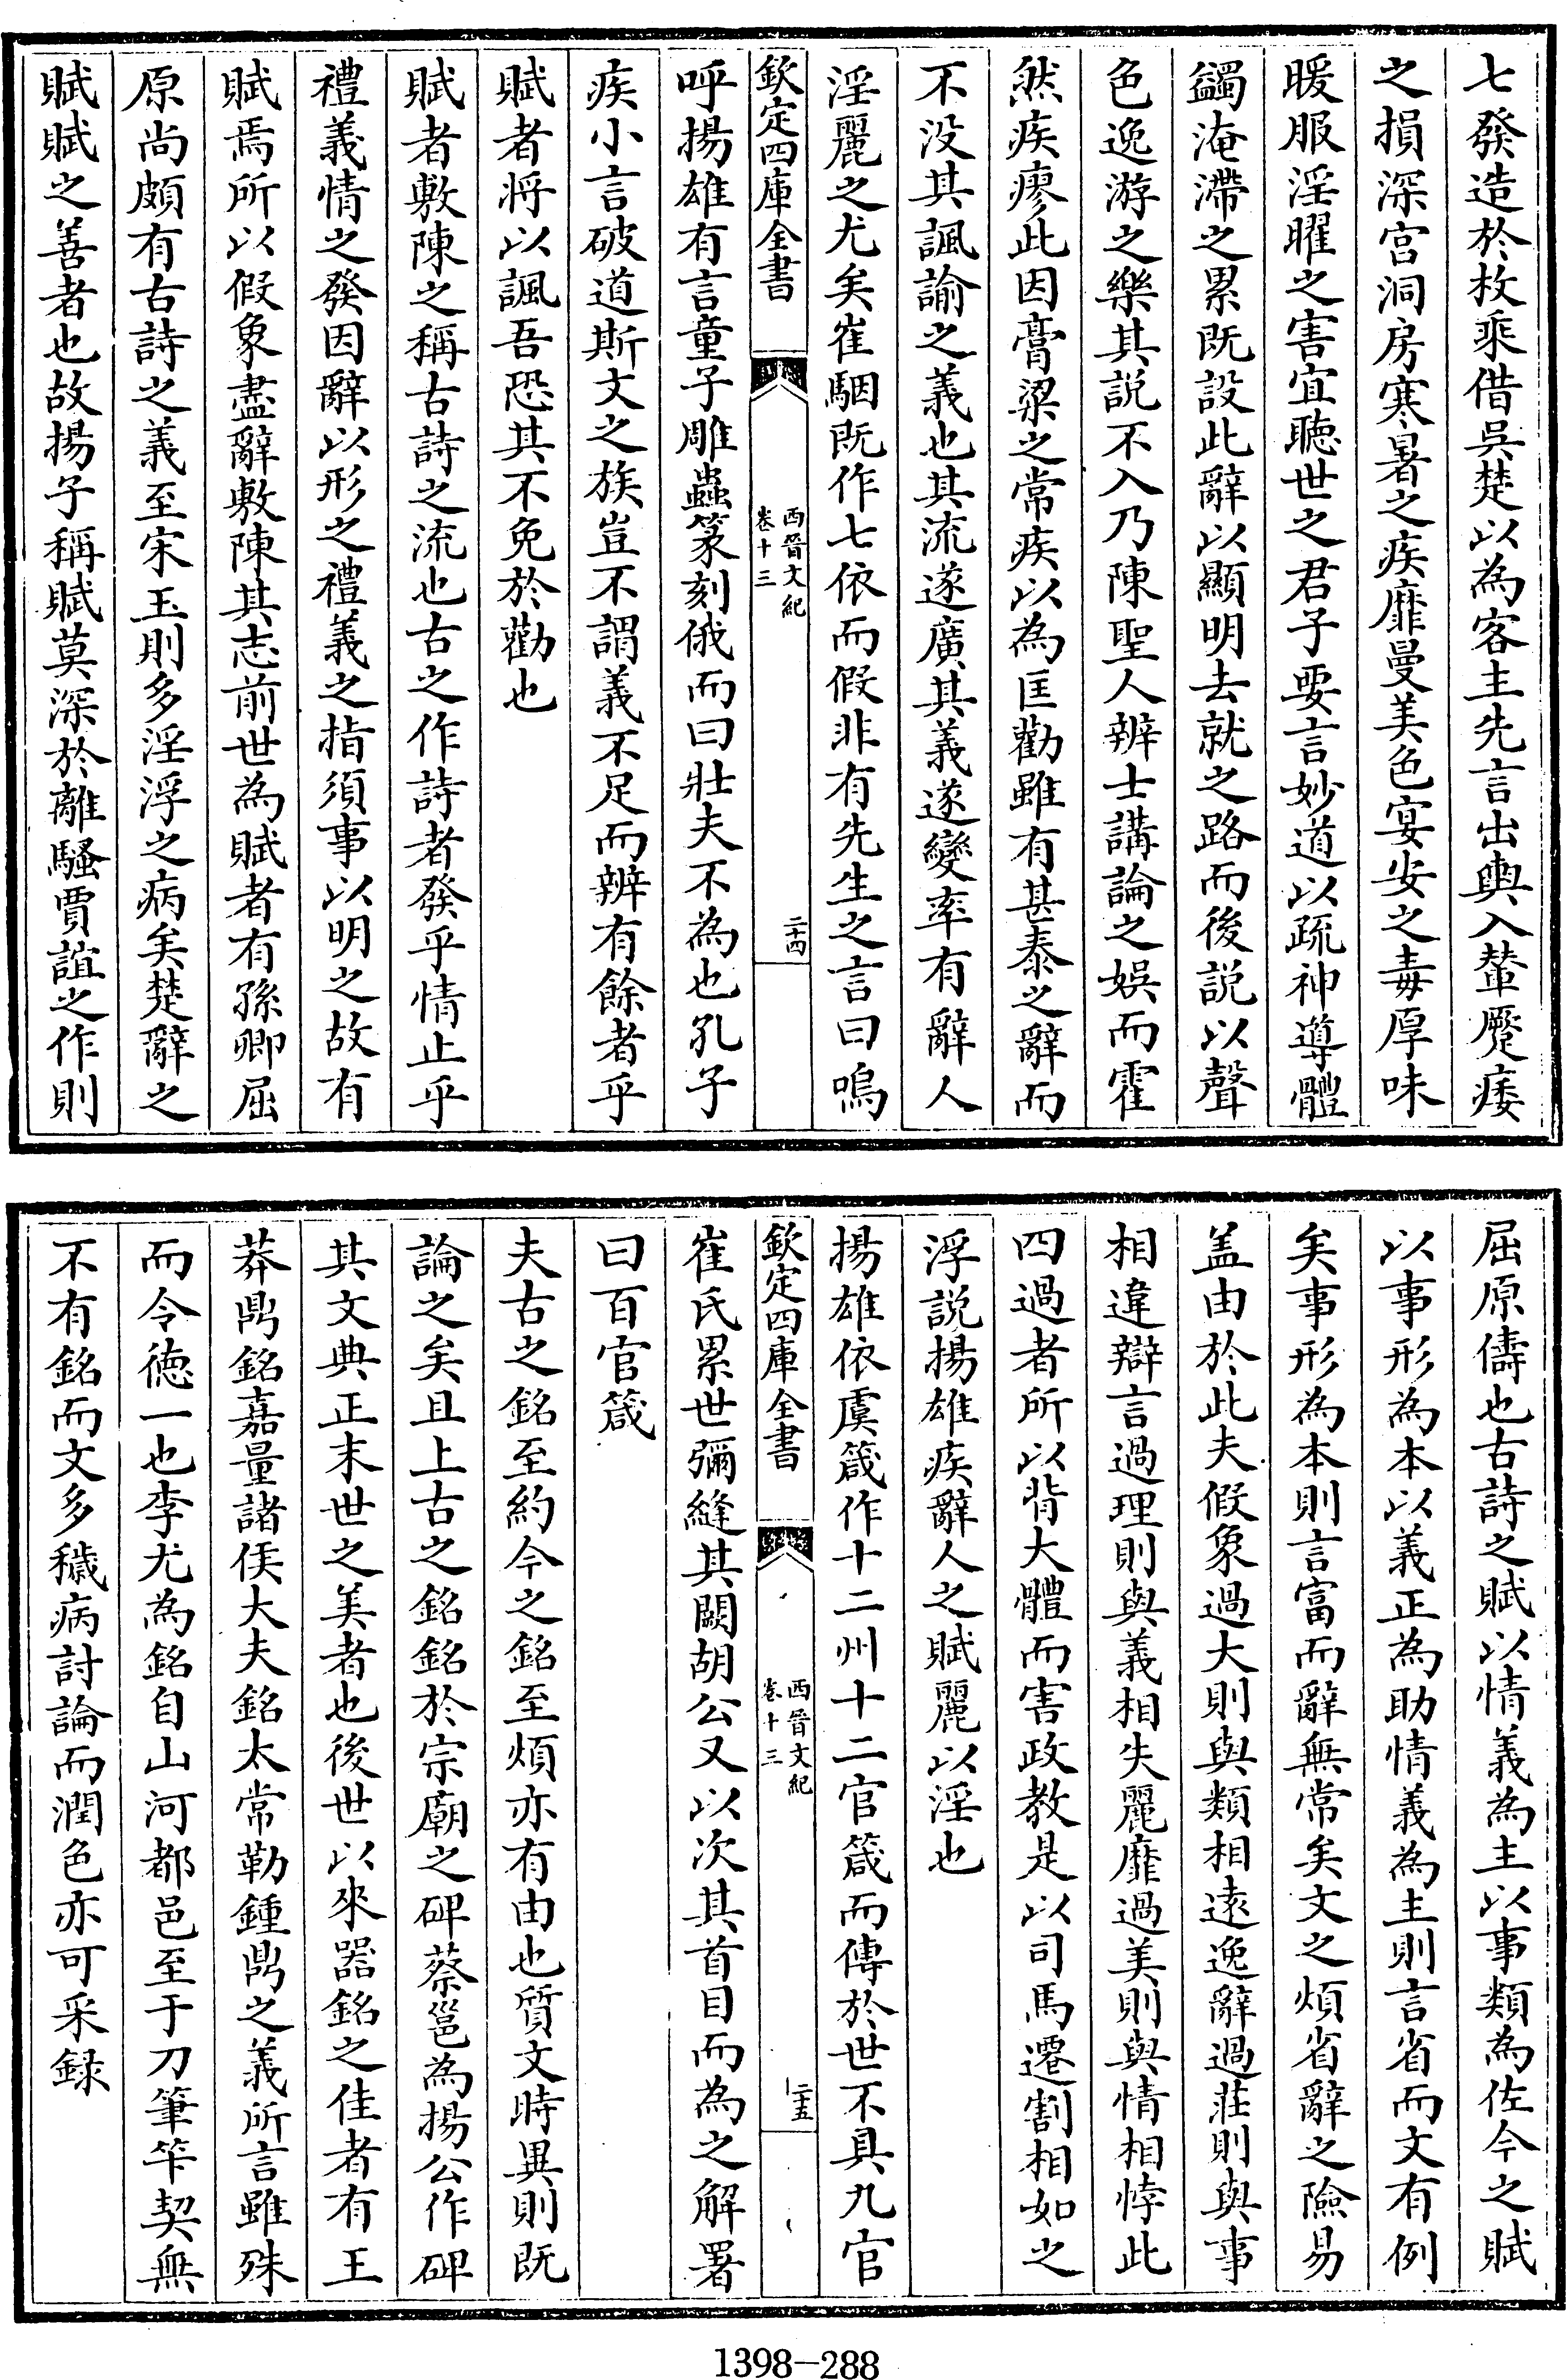 七發造於枚乘借吳楚以為客主先言出輿入輦蹷痿
之損深宫洞房寒暑之疾靡曼美色宴安之毒厚味
暖服淫曜之害宜聽世之君子要言妙道以疏神導體
蠲淹滯之累既設此辭以顯明去就之路而後説以聲
色逸游之樂其説不入乃陳聖人辨士講論之娛而霍
然疾瘳此因膏粱之常疾以為匡勸雖有甚泰之辭而
不没其諷諭之義也其流遂廣其義遂變率有辭人
淫麗之尤矣崔駰既作七依而假非有先生之言曰嗚
欽定四庫全書
西晉文紀
卷十三
二十四
呼揚雄有言童子雕蟲篆刻俄而曰壯夫不為也孔子
疾小言破道斯文之族豈不謂義不足而辨有餘者乎
賦者将以諷吾恐其不免於勸也
賦者敷陳之稱古詩之流也古之作詩者發乎情止乎
禮義情之發因辭以形之禮義之指須事以明之故有
賦焉所以假象盡辭敷陳其志前世為賦者有孫卿屈
原尚頗有古詩之義至宋玉則多淫浮之病矣楚辭之
賦賦之善者也故揚子稱賦莫深於離騷賈誼之作則
屈原儔也古詩之賦以情義為主以事類為佐今之賦
以事形為本以義正為助情義為主則言省而文有例
矣事形為本則言富而辭無常矣文之煩省辭之險易
盖由於此夫假象過大則與類相遠逸辭過莊則與事
相違辯言過理則與義相失麗靡過美則與情相悖此
四過者所以背大體而害政教是以司馬遷割相如之
浮説揚雄疾辭人之賦麗以淫也
揚雄依虞箴作十二州十二官箴而傳於世不具九官
欽定四庫全書
西晉文紀
卷十三
二十五
崔氏累世彌縫其闕胡公又以次其首目而為之解署
曰百官箴
夫古之銘至約今之銘至煩亦有由也質文時異則既
論之矣且上古之銘銘於宗廟之碑蔡邕為揚公作碑
其文典正末世之美者也後世以來器銘之佳者有王
莽鼎銘嘉量諸侯大夫銘太常勒鍾鼎之義所言雖殊
而令徳一也李尤為銘自山河都邑至于刀筆笇契無
不有銘而文多穢病討論而潤色亦可采録
1398—288